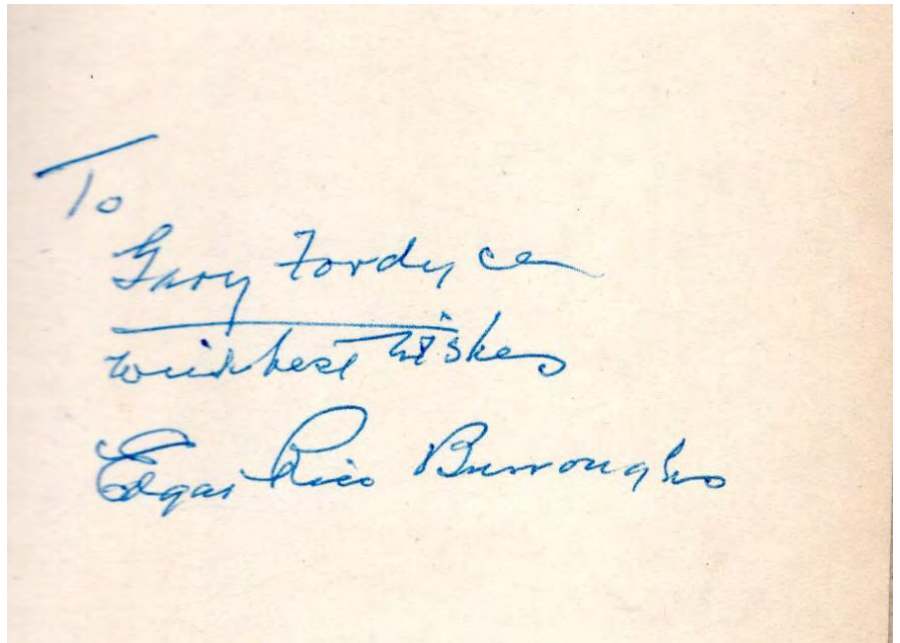 To
Gary Fordyce
with best wishes
Edgar Rice Burroughs